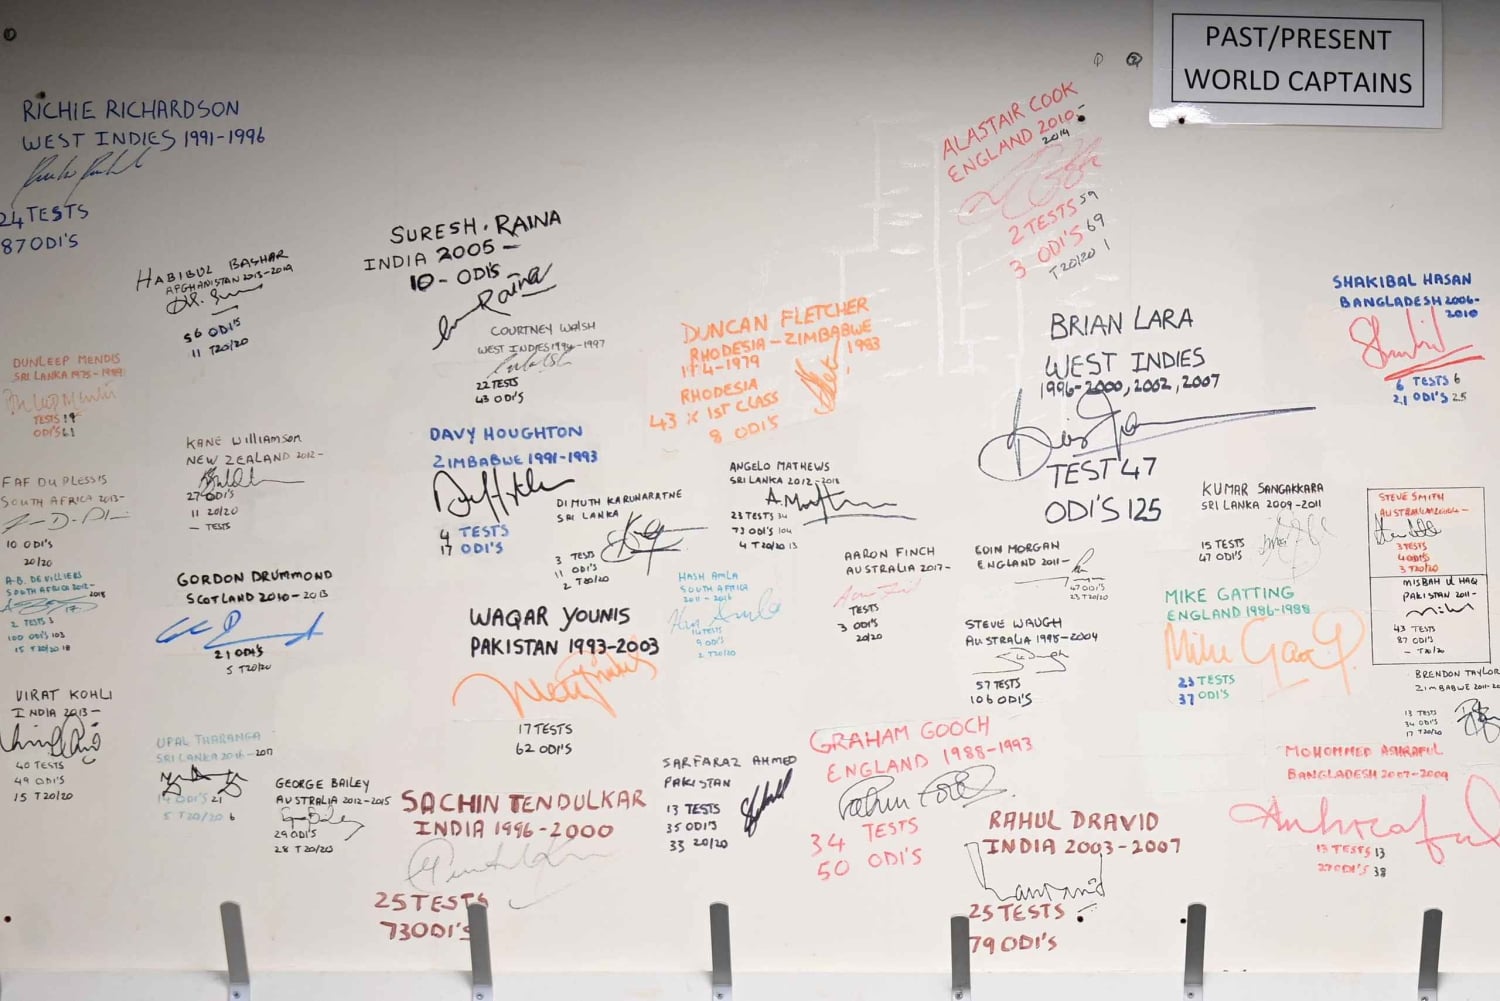 PAST/PRESENT
WORLD CAPTAINS
RICHIE RICHARDSON
WEST INDIES 1991-1996
24 TESTS
87 ODI'S
HABIBUL BASHAR
AFGHANISTAN 2013-2019
56 ODI'S
11 T20/20
SURESH. RAINA
INDIA 2005 -
10 - ODI'S
Raina
COURTNEY WALSH
WEST INDIES 1994-1997
22 TESTS
43 ODI'S
DUNCAN FLETCHER
RHODESIA - ZIMBABWE
1974-1979
1983
RHODESIA
43 X 1ST CLASS
8 ODI'S
ALASTAIR COOK
ENGLAND 2010-
2014
2 TESTS 59
3 ODI'S 69
T20/20 1
BRIAN LARA
WEST INDIES
1996-2000, 2002, 2007
TEST 47
ODI'S 125
SHAKIBAL HASAN
BANGLADESH 2006-
2010
6 TESTS 6
21 ODI'S 25
DUNLEEP MENDIS
SRI LANKA 1975-1989
TESTS 19
ODI'S 61
KANE WILLIAMSON
NEW ZEALAND 2012-
27 ODI'S
11 20/20
- TESTS
DAVY HOUGHTON
ZIMBABWE 1991-1993
4 TESTS
17 ODI'S
DIMUTH KARUNARATNE
SRI LANKA
3 TESTS
11 ODI'S
2 T20/20
ANGELO MATHEWS
SRI LANKA 2012-2018
23 TESTS 34
73 ODI'S 104
4 T20/20 13
KUMAR SANGAKKARA
SRI LANKA 2009-2011
15 TESTS
47 ODI'S
STEVE SMITH
3 TESTS
3 T20/20
MISBAH U HAQ
PAKISTAN 2011-
43 TESTS
87 ODI'S
- T20/20
FAF DU PLESSIS
SOUTH AFRICA 2013-
10 ODI'S
20/20
A.B. DE VILLIERS
SOUTH AFRICA 2012-
2018
17
2 TESTS 3
100 ODI'S 103
15 T20/20 18
GORDON DRUMMOND
SCOTLAND 2010-2013
21 ODI'S
5 T20/20
WAQAR YOUNIS
PAKISTAN 1993-2003
17 TESTS
62 ODI'S
HASH AMLA
SOUTH AFRICA
2011-2016
TESTS
9 ODI'S
2 T20/20
AARON FINCH
AUSTRALIA 2017-
TESTS
3 ODI'S
20/20
EOIN MORGAN
ENGLAND 2011-
47 ODI'S
23 T20/20
STEVE WAUGH
AUSTRALIA 1995-2004
57 TESTS
106 ODI'S
MIKE GATTING
ENGLAND 1986-1988
Mike Gatting
23 TESTS
37 ODI'S
BRENDON TAYLOR
ZIMBABWE 2011-20
13 TESTS
34 ODI'S
17 T20/20
VIRAT KOHLI
INDIA 2013-
40 TESTS
49 ODI'S
15 T20/20
UPAL THARANGA
SRI LANKA 2016-2017
ODI'S 21
5 T20/20 6
GEORGE BAILEY
AUSTRALIA 2012-2015
29 ODI'S
28 T20/20
SACHIN TENDULKAR
INDIA 1996-2000
25 TESTS
73 ODI'S
SARFARAZ AHMED
PAKISTAN
13 TESTS
35 ODI'S
33 20/20
GRAHAM GOOCH
ENGLAND 1988-1993
34 TESTS
50 ODI'S
RAHUL DRAVID
INDIA 2003-2007
25 TESTS
79 ODI'S
MOHOMMED ASHRAFUL
BANGLADESH 2007-2009
13 TESTS 13
ODI'S 38